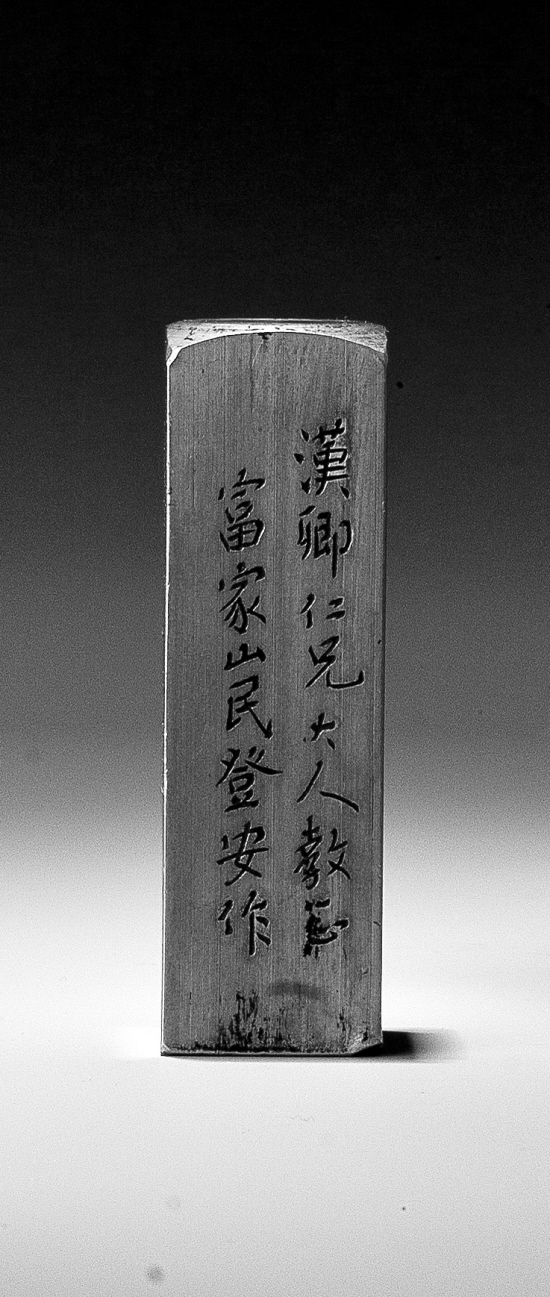 漢卿仁兄大人教
富家山民登安作